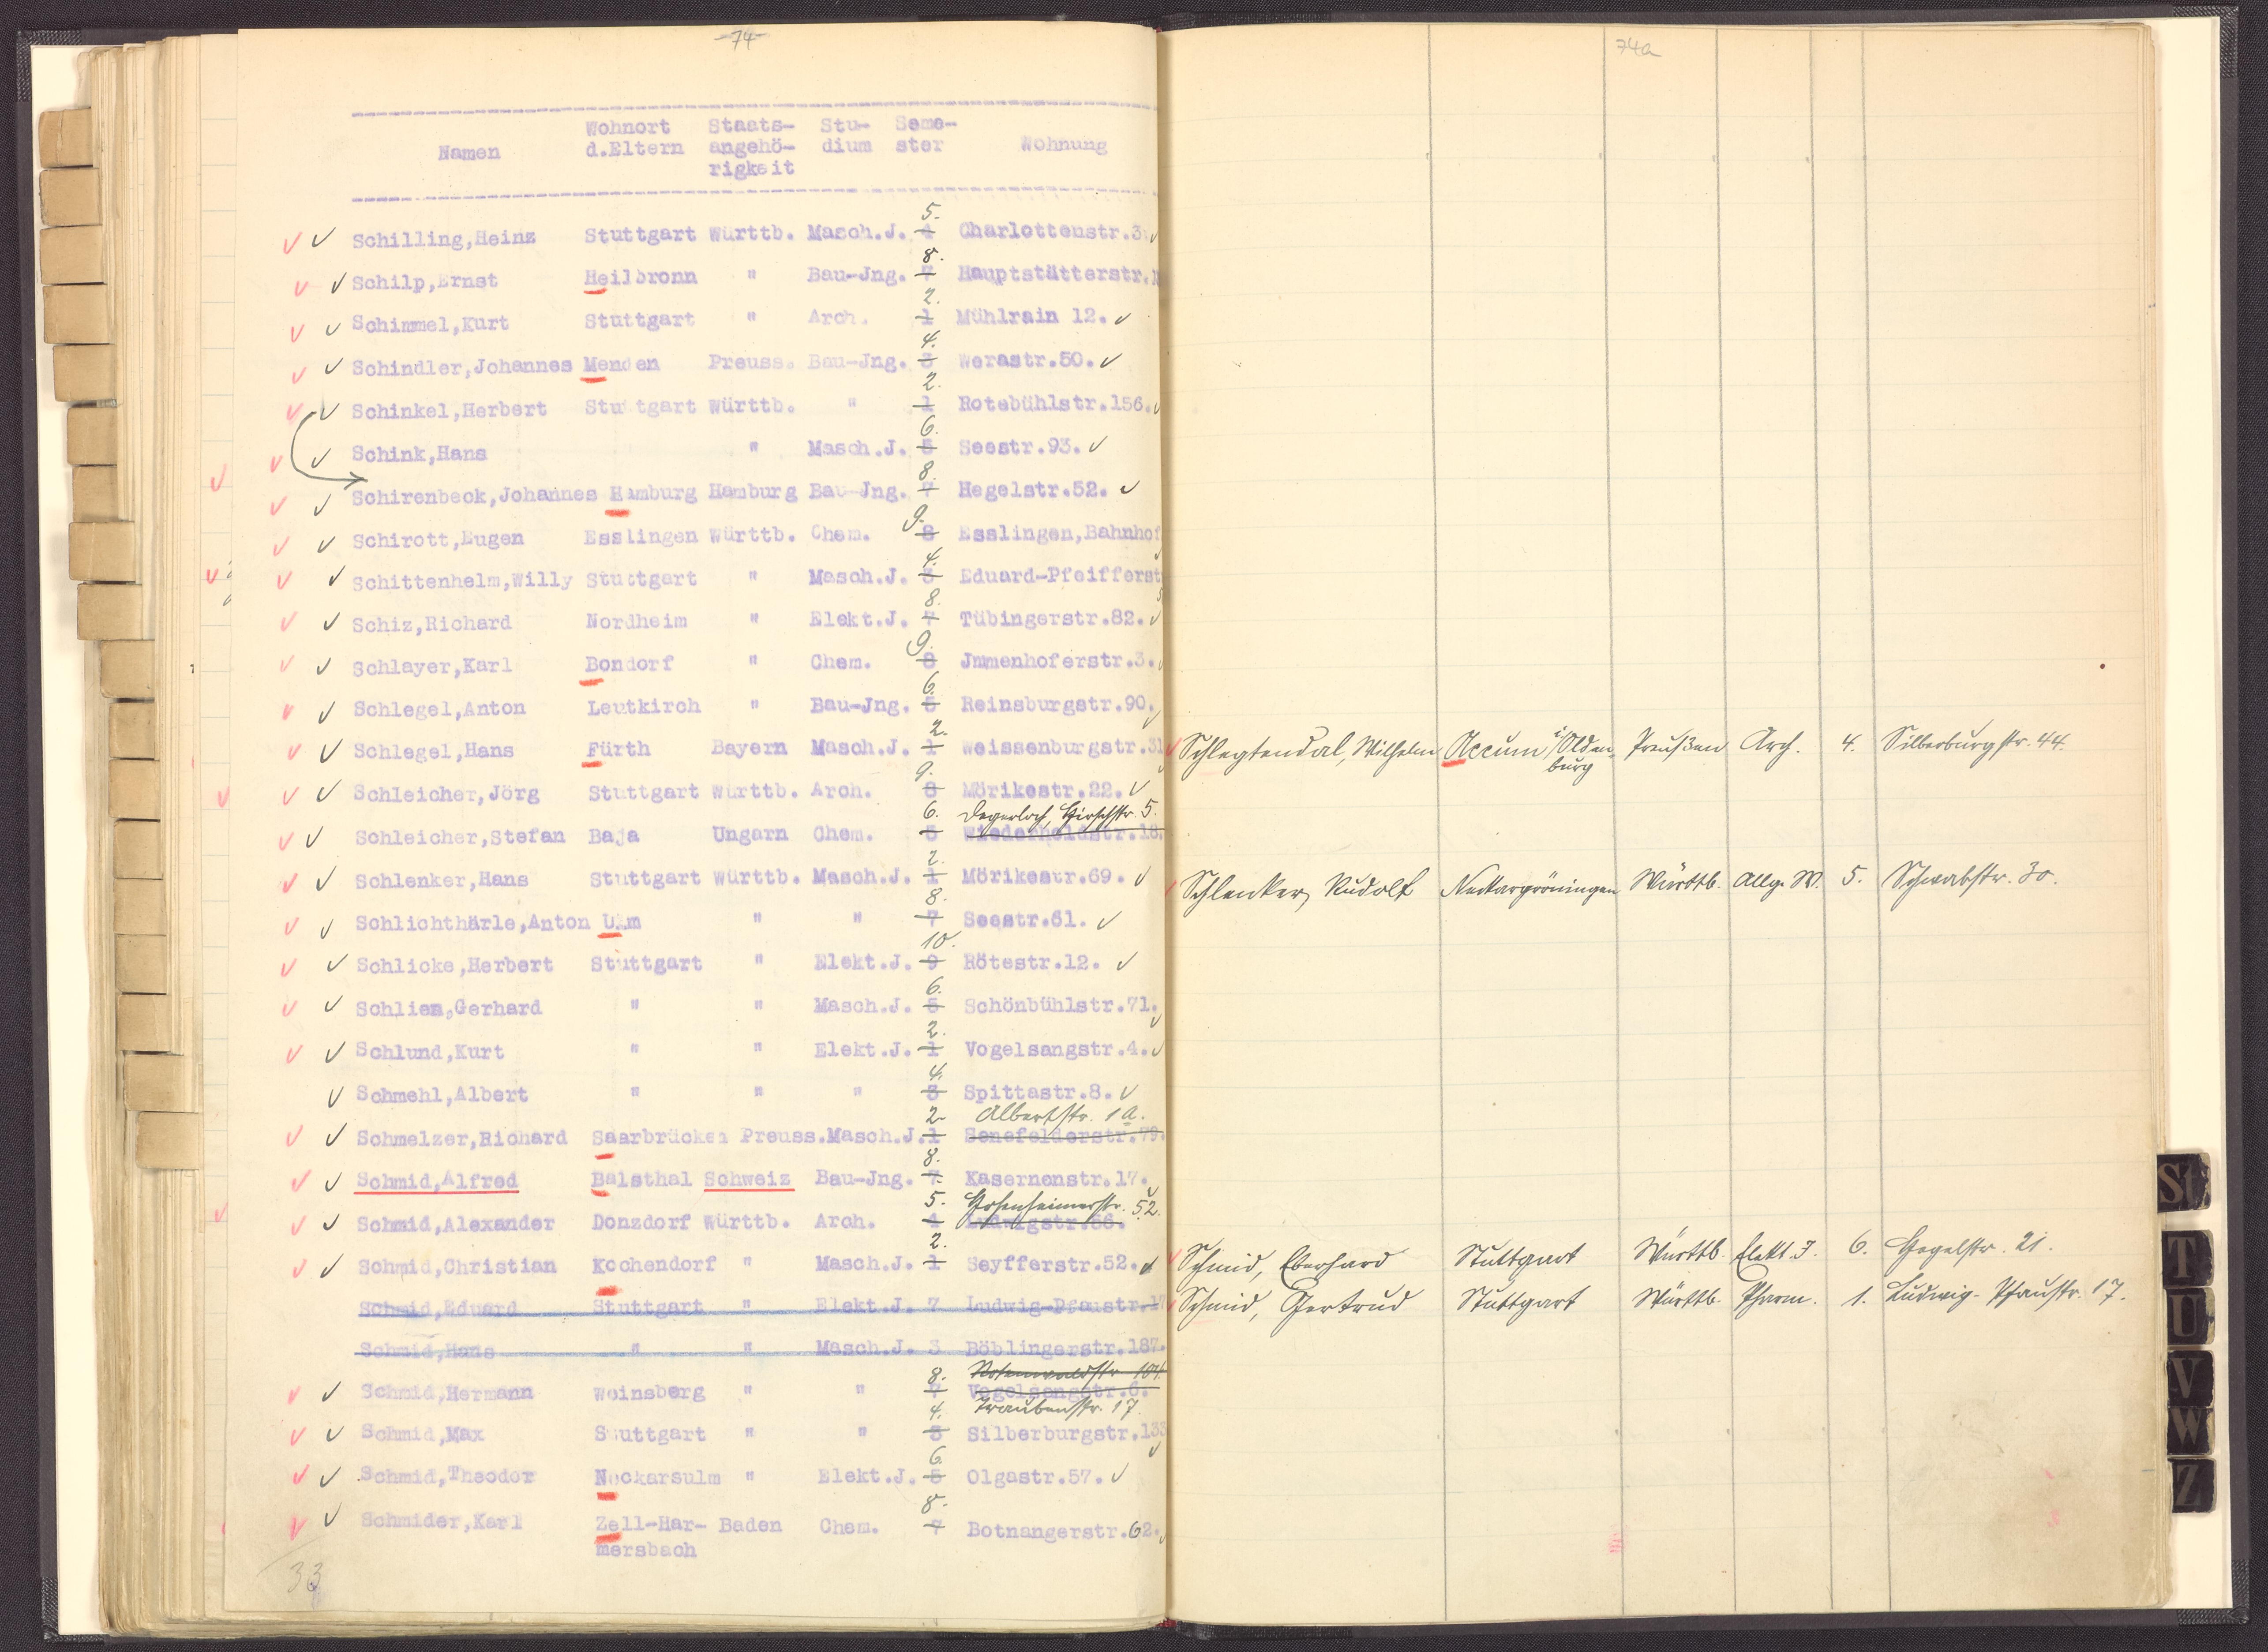 -74-
Namen Wohnort d.Eltern Staats-angehö-rigkeit Stu-dium Seme-ster Wohnung
Schilling,Heinz Stuttgart Württb. Masch.J. 4 5. Charlottenstr.3
Schilp,Ernst Heilbronn " Bau-Jng. 7 8. Hauptstätterstr.
Schimmel,Kurt Stuttgart " Arch. 1 2. Mühlrain 12.
Schindler,Johannes Menden Preuss. Bau-Jng. 3 4. Werastr.50.
Schinkel,Herbert Stuttgart Württb. " 1 2. Rotebühlstr.156.
Schink,Hans " Masch.J. 5 6. Seestr.93.
Schirenbeck,Johannes Hamburg Hamburg Bau-Jng. 7 8. Hegelstr.52.
Schirott,Eugen Esslingen Württb. Chem. 8 9. Esslingen,Bahnhof
Schittenhelm,Willy Stuttgart " Masch.J. 3 4. Eduard-Pfeifferst
Schiz,Richard Nordheim " Elekt.J. 7 8. Tübingerstr.82.
Schlayer,Karl Bondorf " Chem. 8 9. Jmmenhoferstr.3.
Schlegel,Anton Leutkirch " Bau-Jng. 5 6. Reinsburgstr.90.
Schlegel,Hans Fürth Bayern Masch.J. 1 2. Weissenburgstr.31
Schleicher,Jörg Stuttgart Württb. Arch. 8 9. Mörikestr.22.
Degerloch, Hirschstr. 5.
Schleicher,Stefan Baja Ungarn Chem. 5 6. Wiederholdstr.18.
Schlenker,Hans Stuttgart Württb. Masch.J. 1 2. Mörikestr.69.
Schlichthärle,Anton Ulm " " 7 8. Seestr.61.
Schlicke,Herbert Stuttgart " Elekt.J. 9 10. Rötestr.12.
Schliem,Gerhard " " Masch.J. 5 6. Schönbühlstr.71.
Schlund,Kurt " " Elekt.J. 1 2. Vogelsangstr.4.
Schmehl,Albert " " " 3 4. Spittastr.8.
Albertstr. 1a.
Schmelzer,Richard Saarbrücken Preuss.Masch.J. 1 2. Senefelderstr.79.
Schmid,Alfred Balsthal Schweiz Bau-Jng. 7. 8. Kasernenstr.17.
Hohenheimerstr. 52.
Schmid,Alexander Donzdorf Württb. Arch. 4 5. Ludwigstr.66.
Schmid,Christian Kochendorf " Masch.J. 1 2. Seyfferstr.52.
Schmid,Eduard Stuttgart " Elekt.J. 7 Ludwig-Pfaustr.17
Schmid,Hans " " Masch.J. 3 Böblingerstr.187.
Rotenwaldstr. 104.
Schmid,Hermann Weinsberg " " 7 8. Vogelsangstr.6.
Traubenstr. 17.
Schmid,Max Stuttgart " " 3 4. Silberburgstr.133
Schmid,Theodor Neckarsulm " Elekt.J. 5 6. Olgastr.57.
Schmider,Karl Zell-Har-mersbach Baden Chem. 7 8. Botnangerstr.62.
33
74a
Schlegtendal, Wilhelm Accum i/Olden-burg Preußen Arch. 4. Silberburgstr. 44.
Schlenker, Rudolf Neckargröningen Württb. Allg. W. 5. Schwabstr. 30.
Schmid, Eberhard Stuttgart Württb. Elekt. J. 6. Hegelstr. 21.
Schmid, Gertrud Stuttgart Württb. Pharm. 1. Ludwig-Pfaustr. 17.
St
T
U
V
W
Z